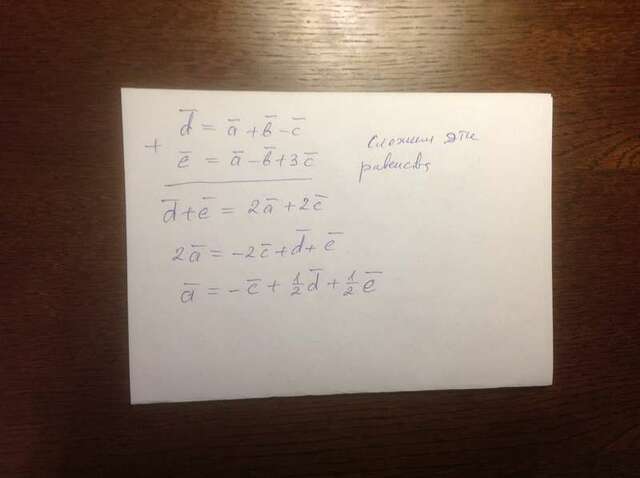 d̅ = a̅ + b̅ - c̅
+
e̅ = a̅ - b̅ + 3c̅
сложим эти
равенства
d̅ + e̅ = 2a̅ + 2c̅
2a̅ = -2c̅ + d̅ + e̅
a̅ = -c̅ + ½d̅ + ½e̅